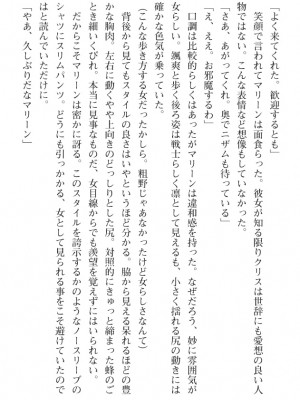 「よく来てくれた。歓迎するとも」
　笑顔で言われてマリーンは面食らった。彼女が知る限りクリスは世辞にも愛想の良い人
物ではない。こんな表情など想像もしていなかった。
「さあ、あがってくれ。奥でニザムも待っている」
「え、ええ。お邪魔するわ」
　口調は比較的らしくはあったがマリーンは違和感を持った。なぜだろう、妙に雰囲気が
女らしい。颯爽と歩く後ろ姿は戦士らしく凛として見えるも、小さく揺れる尻の動きには
確かな色気が乗っていた。
（こんな歩き方する女だったかしら。粗野じゃあなかったけど女らしさなんて）
　背後から見てもスタイルの良さはいやというほど分かる。脇から見える呆れるほどの豊
かな胸肉。左右に動くやや上向きのどっしりとした尻。対照的にきゅっと締まった蜂のご
とき細いくびれ。本当に見事なものだ、女目線からでも羨望を覚えずにはいられない。
　だからこそマリーンは密かに訝る。このスタイルを誇示するかのようなノースリーブの
シャツにスリムパンツ。どうにも引っかかる、女として見られる事をこそ避けていたので
はと読んでいただけに。
「やあ、久しぶりだなマリーン」